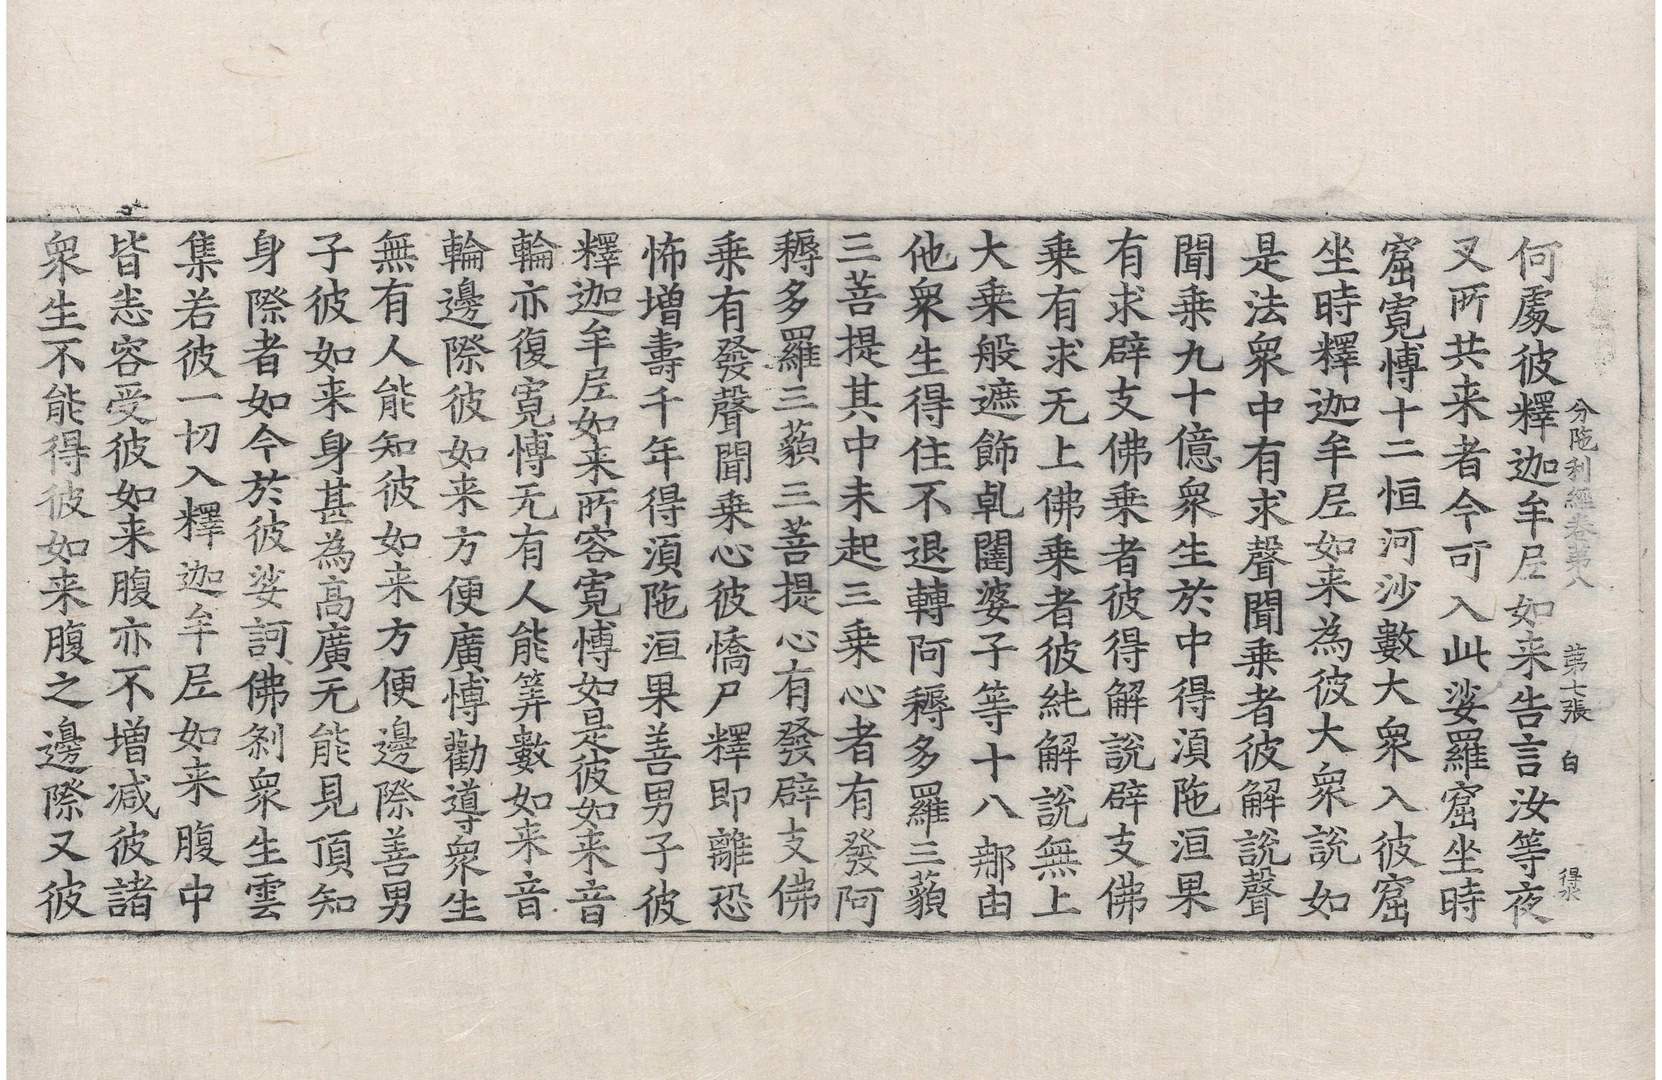 分陁利經卷第八 第七張 白 得永
何處彼釋迦牟尼如来告言汝等夜
叉所共来者今可入此娑羅窟坐時
窟寬愽十二恒河沙數大衆入彼窟
坐時釋迦牟尼如来為彼大衆說如
是法衆中有求聲聞乗者彼解說聲
聞乗九十億衆生於中得湏陁洹果
有求辟支佛乗者彼得解說辟支佛
乗有求无上佛乗者彼純解說無上
大乗般遮飾乹闥婆子等十八那由
他衆生得住不退轉阿耨多羅三藐
三菩提其中未起三乗心者有發阿
耨多羅三藐三菩提心有發辟支佛
乗有發聲聞乗心彼憍尸釋即離恐
怖增壽千年得湏陁洹果善男子彼
釋迦牟尼如来所容寬愽如是彼如来音
輪亦復寬愽无有人能筭數如来音
輪邊際彼如来方便廣愽勸導衆生
無有人能知彼如来方便邊際善男
子彼如来身甚為高廣无能見頂知
身際者如今於彼娑訶佛剎衆生雲
集若彼一切入釋迦牟尼如来腹中
皆悉容受彼如来腹亦不增减彼諸
衆生不能得彼如来腹之邊際又彼